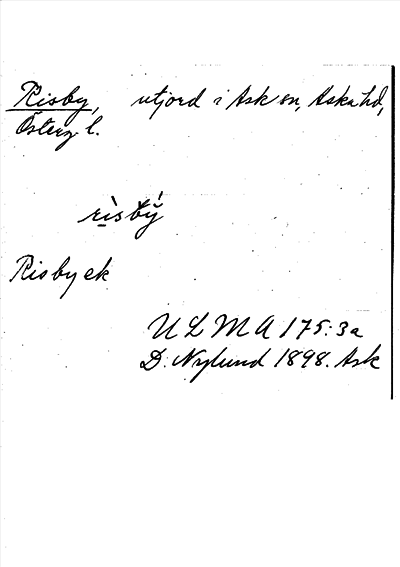 Risby, utjord i Ask sn, Aska hd,
Österg l.
rìsbý
Risby ek
ULMA 175:3a
D. Nylund 1898. Ask